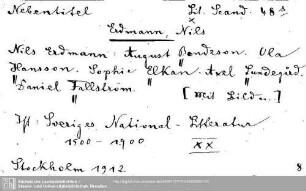 Nebentitel Lit. Scand. 48
Erdmann, Nils
Nils Erdmann: August Bondeson. Ola
Hansson. Sophie Elkan. Axel Lundegård.
Daniel Fallström. [Mit Bildn.]
Ist: Sveriges National-Litteratur
1500-1900 XX
Stockholm 1912 8